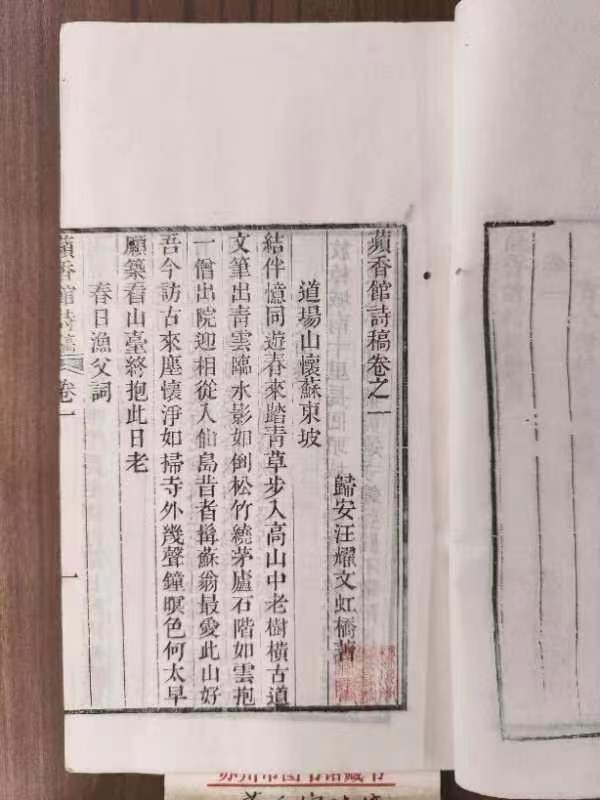 蘋香館詩稿卷之一
歸安汪燿文虹橋著
道場山懷蘇東坡
結伴憶同遊春來踏青草步入高山中老樹橫古道
文筆出青雲臨水影如倒松竹繞茅廬石階如雲抱
一僧出院迎相從入仙島昔者揖蘇翁最愛此山好
吾今訪古來塵懷淨如掃寺外幾聲鐘暝色何太早
願築看山臺終抱此日老
春日漁父詞
蘋香館詩稿
卷一
一
蘇州市图书馆藏书